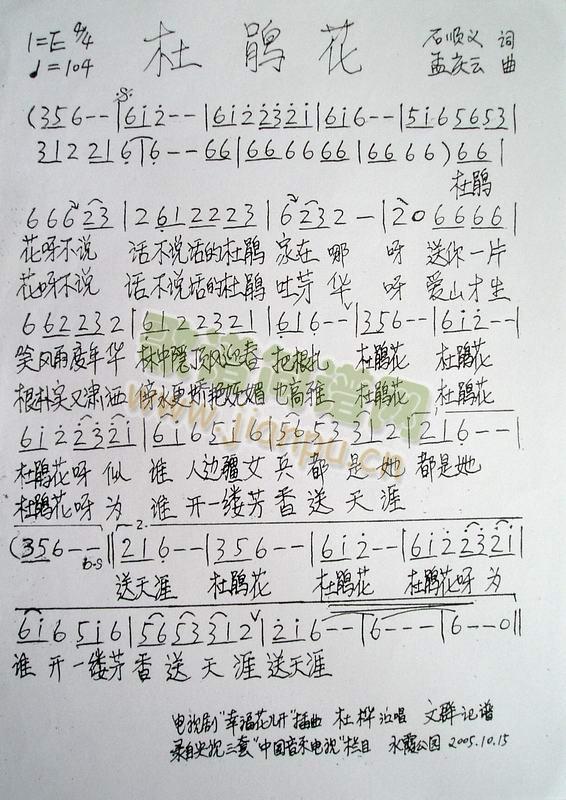 1=E 4/4 杜鹃花 石顺义 词
♩=104 孟庆云 曲
(356-- | 6i2-- | 6i2232i | 6i6-- | 5i65653 |
3122216 | 6--66 | 6666666 | 6666) 66 |
杜鹃
66623 | 2612223 | 6232- | 206666 |
花呀不说 话不说话的杜鹃 家在哪 呀 送你一片
花呀不说 话不说话的杜鹃 吐芳华 呀 爱山才生
662232 | | 616-- | 356-- | 6i2-- |
笑风雨度年华 林中 顶风迎春 把根扎 杜鹃花 杜鹃花
根朴实又潇洒 傍水更娇艳妩媚 也高雅 杜鹃花 杜鹃花
6i2232i | | | 2i6-- |
杜鹃花呀似 谁 人边疆女兵都是她 都是她
杜鹃花呀为 谁 开一缕芳香送天涯
(356-- D.S | 2. 2i6-- | 356-- | 6i2-- | 6i2232i |
送天涯 杜鹃花 杜鹃花 杜鹃花呀为
6i65i6 | 5653312 | 2i6-- | 6--- | 6--0 ‖
谁 开一缕芳香送天涯 送天涯
电视剧“幸福花儿开”插曲 杜桦 演唱 文群 记谱
录自央视三套“中国音乐电视”栏目 永霞公园 2005.10.15
www.jianpu.cn